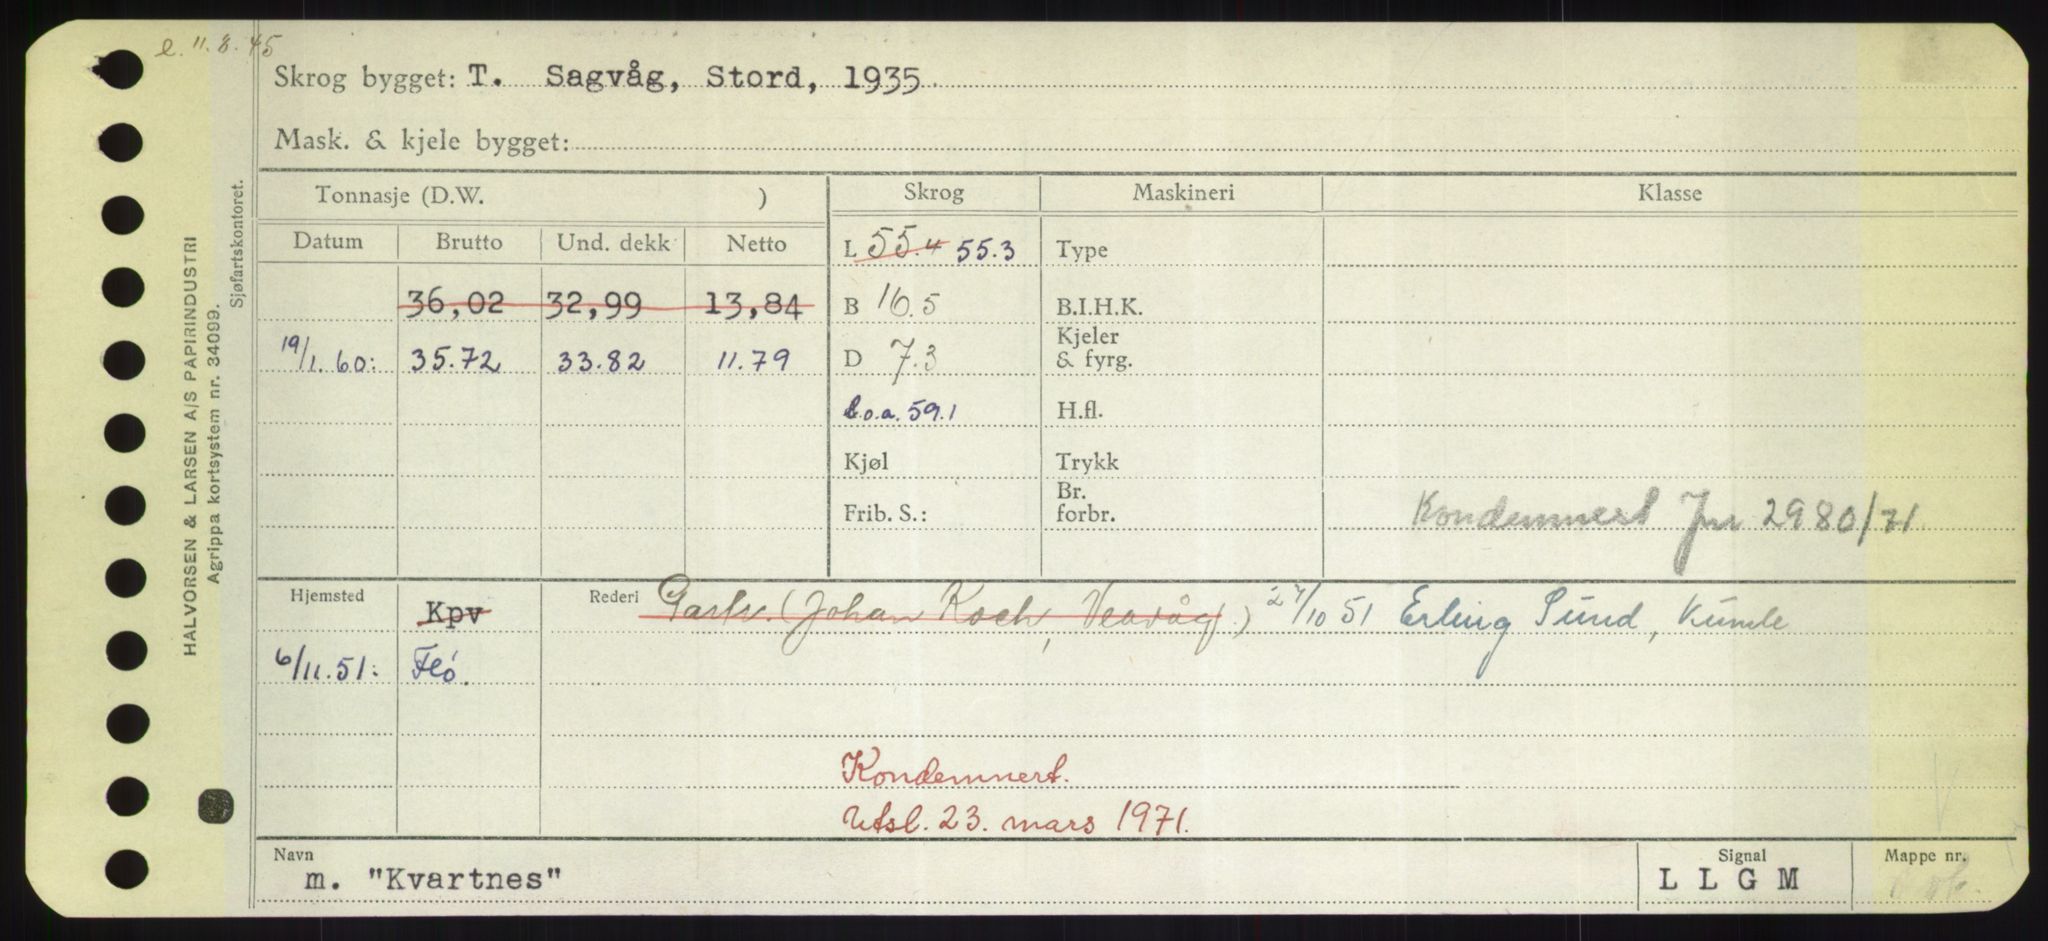 e. 11.8.45
Skrog bygget: T. Sagvåg, Stord, 1935
Mask. & kjele bygget:
Tonnasje (D.W. ) Skrog Maskineri Klasse
Datum Brutto Und. dekk Netto L 55.4 55.3 Type
36,02 32,99 13,84 B 16.5 B.I.H.K.
19/1.60: 35.72 33.82 11.79 D 7.3 Kjeler & fyrg.
l.o.a. 59.1 H.fl.
Kjøl Trykk
Frib. S.: Br. forbr. Kondemnert Jnr 2980/71
Hjemsted Kpv Rederi Partr. (Johan Koch, Veavåg.) 27/10 51 Erling Sund,
6/11.51: Flo.
Kondemnert.
Utsl. 23. mars 1971.
Navn Signal Mappe nr.
m. "Kvartnes" L L G M
HALVORSEN & LARSEN A/S PAPIRINDUSTRI
Agrippa kortsystem nr. 34099.
Sjøfartskontoret.